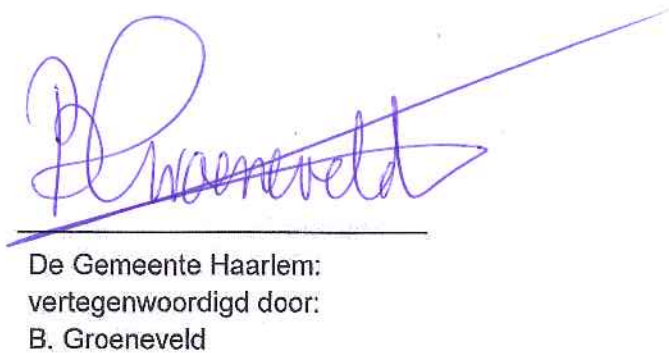 BGroeneveld
De Gemeente Haarlem:
vertegenwoordigd door:
B. Groeneveld